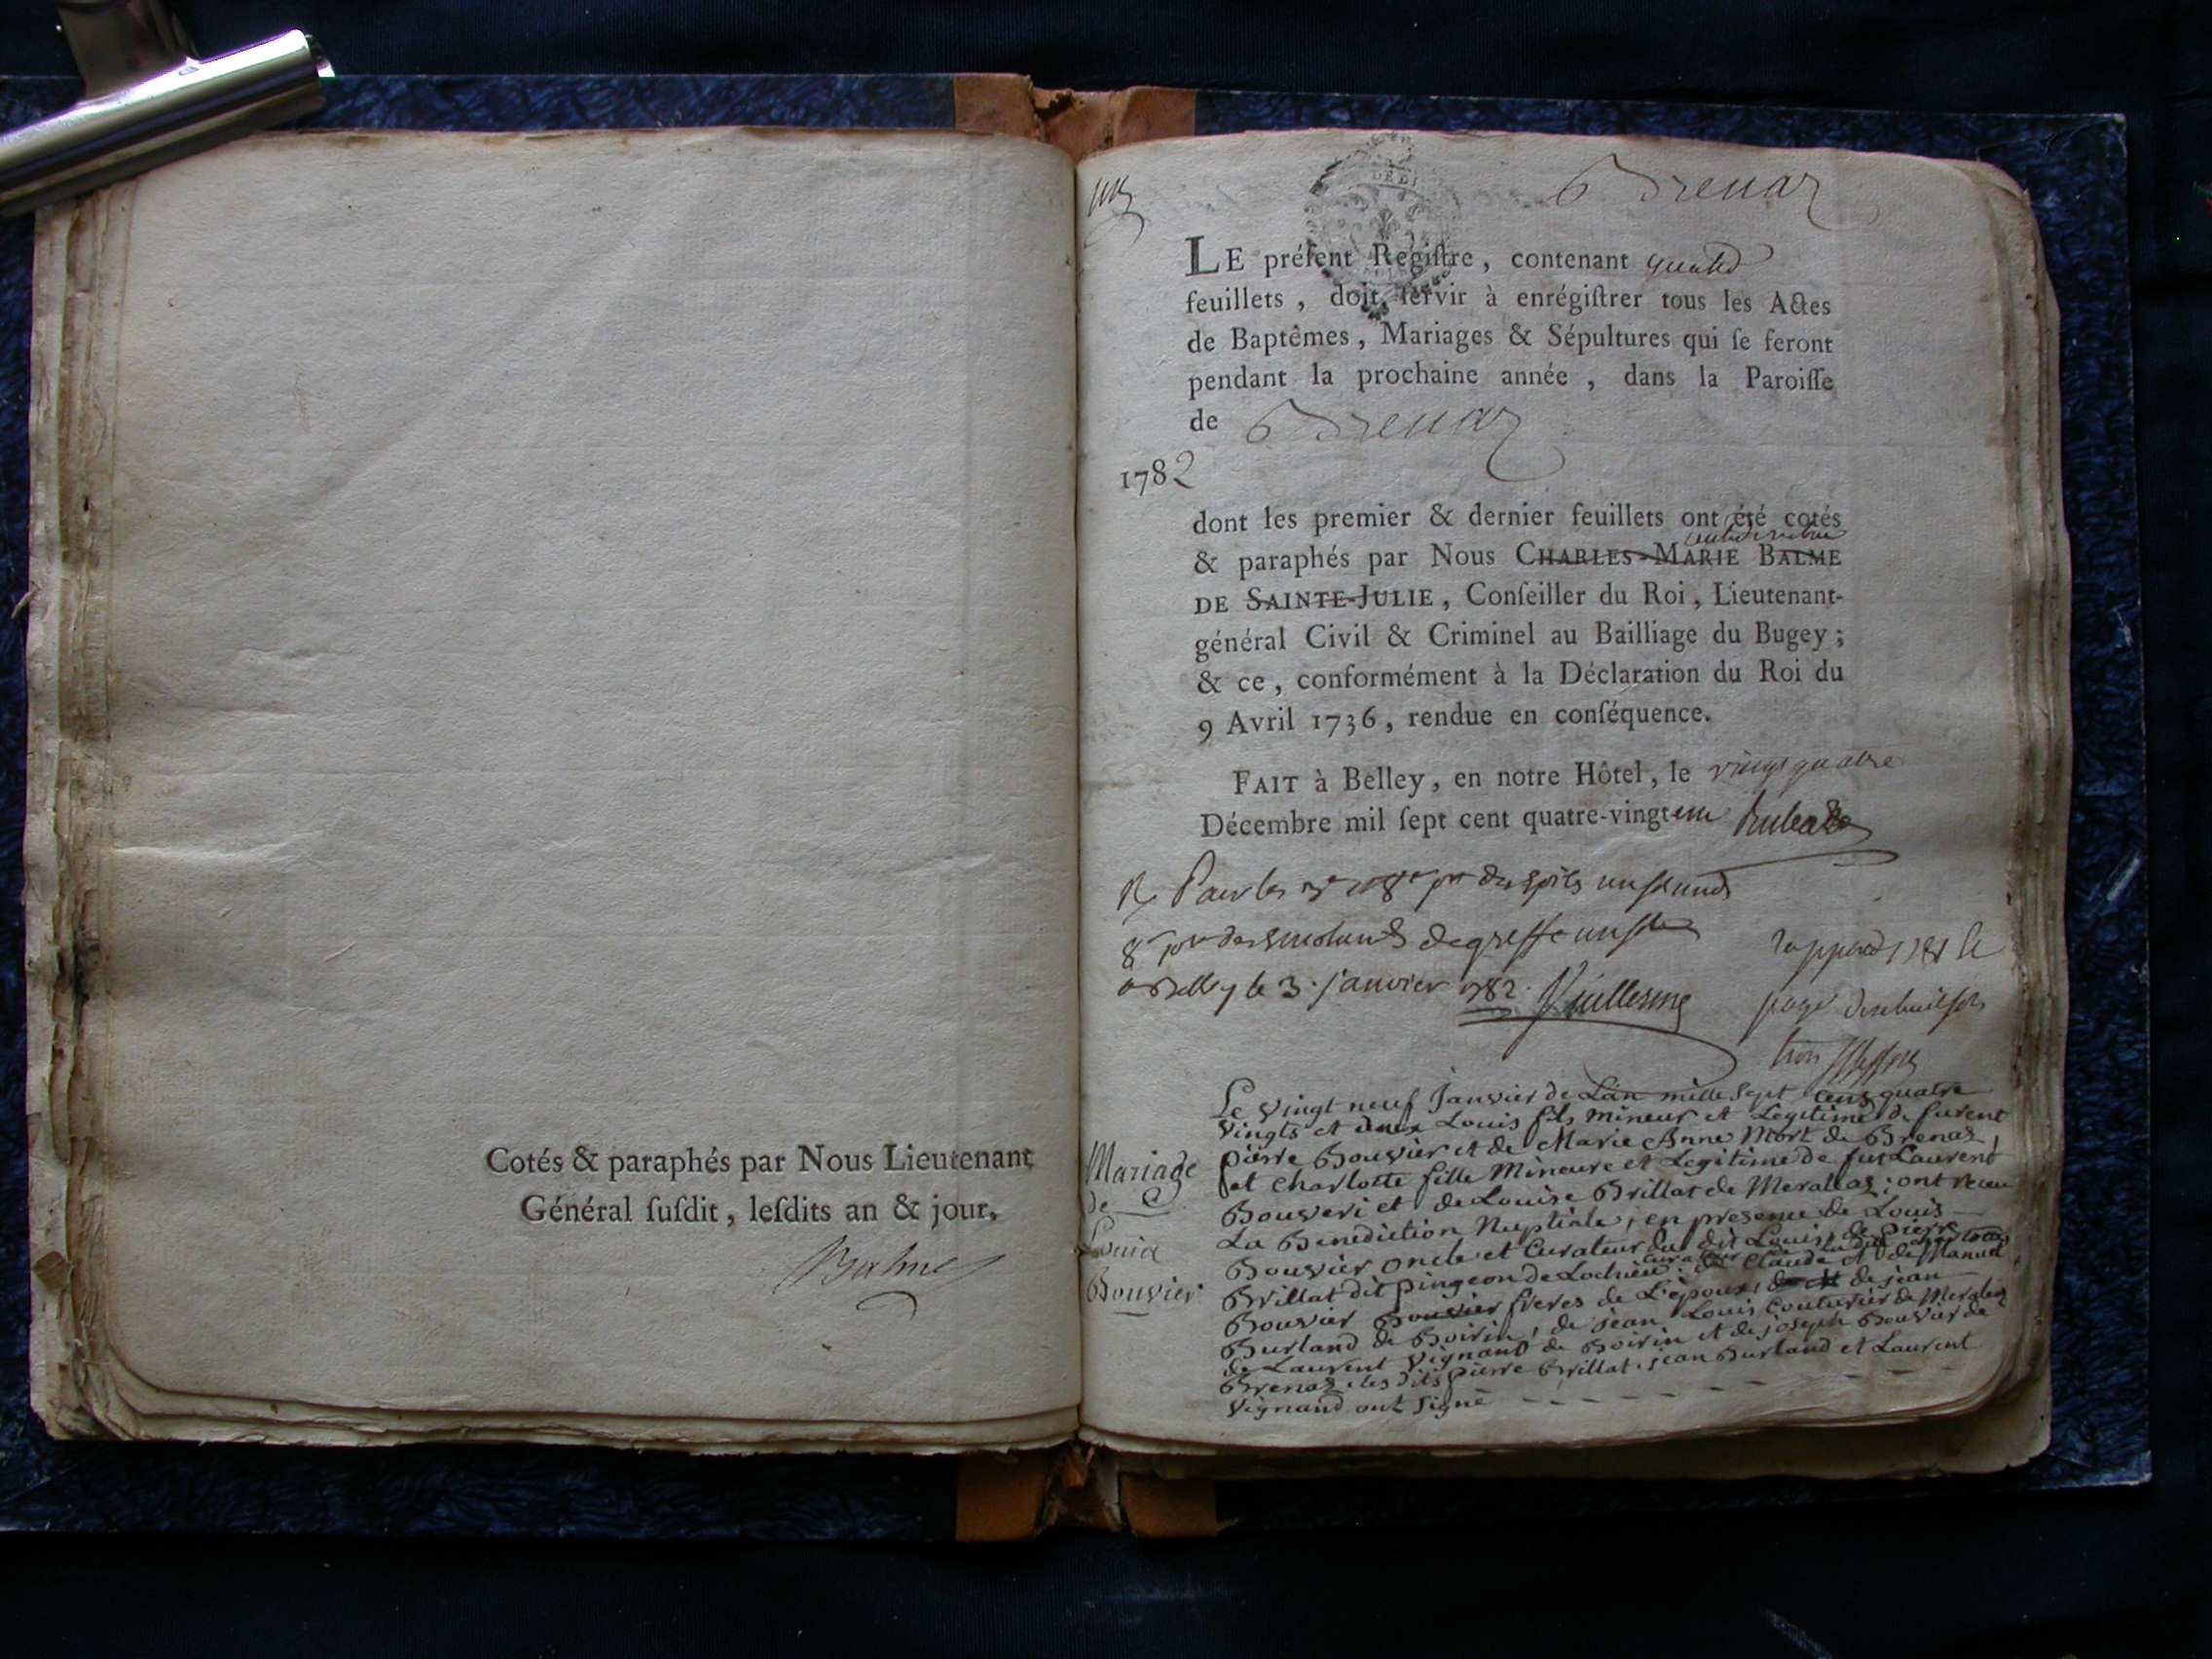 Cotés & paraphés par Nous Lieutenant
Général ſuſdit, leſdits an & jour.
Balme
Brenaz
LE préſent Régiſtre, contenant
feuillets, doit ſervir à enrégiſtrer tous les Actes
de Baptêmes, Mariages & Sépultures qui ſe feront
pendant la prochaine année, dans la Paroiſſe
de Brenaz
1782
dont les premier & dernier feuillets ont été cotés
& paraphés par Nous CHARLES-MARIE BALME
DE SAINTE-JULIE, Conſeiller du Roi, Lieutenant-
général Civil & Criminel au Bailliage du Bugey;
& ce, conformément à la Déclaration du Roi du
9 Avril 1736, rendue en conſéquence.
FAIT à Belley, en notre Hôtel, le vingt quatre
Décembre mil ſept cent quatre-vingt un
greffe
a Belley le 3. janvier 1782.
Mariage
de
Louis
Bouvier
Le vingt neuf Janvier de L'an mille Sept cens quatre
vingts et deux Louis fils mineur et Legitime de furent
pierre Bouvier et de Marie Anne Mort de Brenaz,
et charlotte fille Mineure et Legitime de fut Laurent
Bouveri et de Louise Brillat de Meraleaz; ont reçeu
La Benediction Nuptiale, en presence de Louis
Bouvier oncle et Curateur du dit Louis, de pierre
Brillat dit pingeon de Lochieu curateur de la dite charlotte
Bouvier Bouvier freres de L'epoux, de jean
Burland de Boirin, de jean Louis Couturier de Meraleaz
de Laurent vignand de Boirin et de joseph Bouvier de
Brenaz. les dits pierre Brillat. jean Burland et Laurent
vignand ont signé